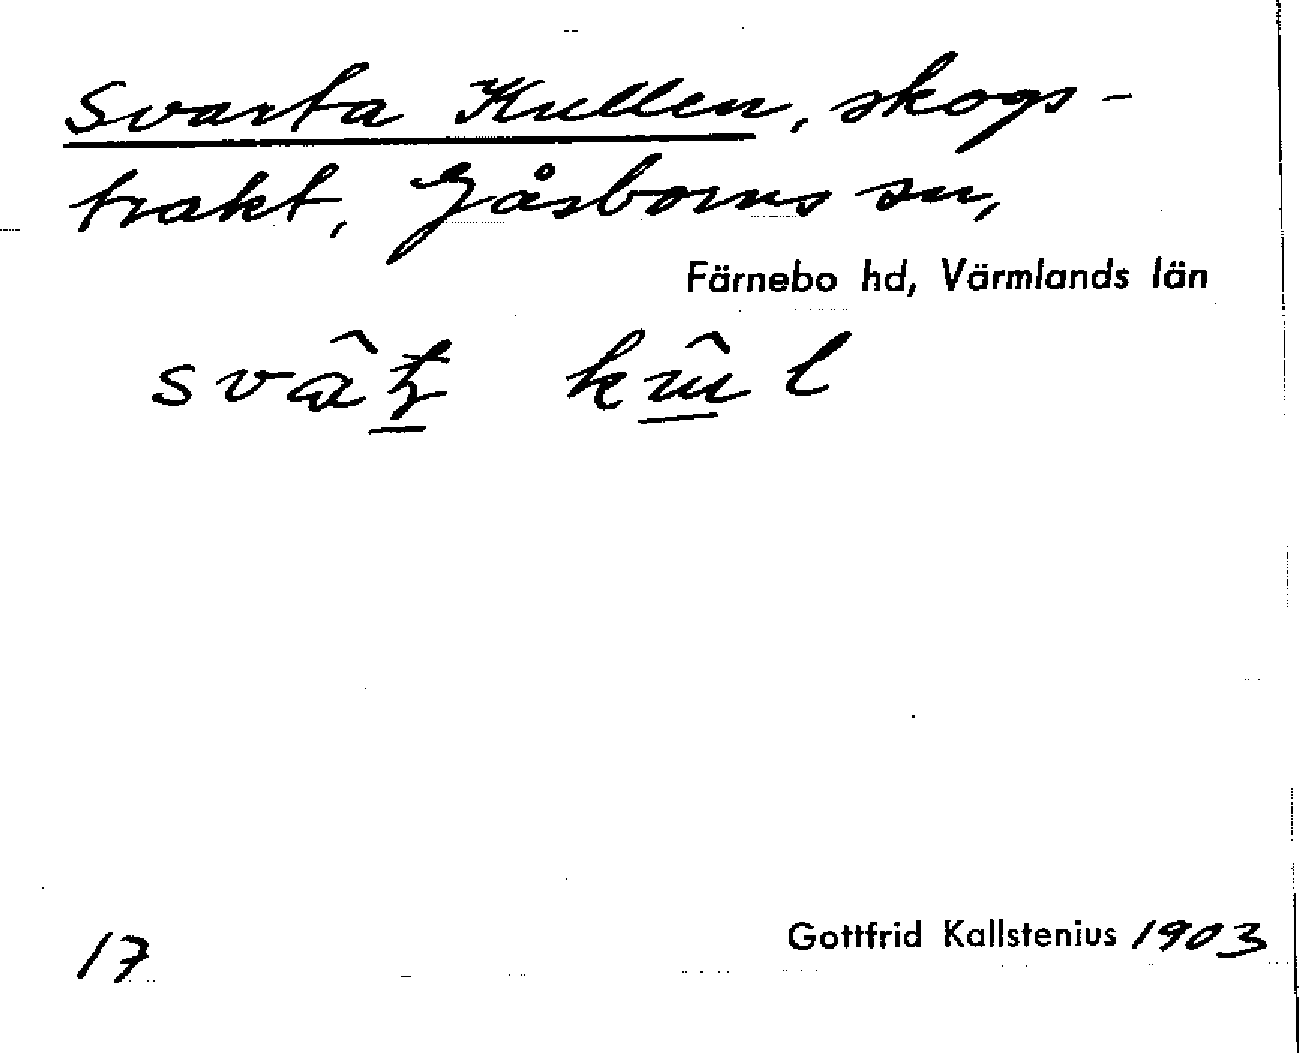 Svarta Kullen, skogs-
trakt, Gåsborns sn,
Färnebo hd, Värmlands län
17
Gottfrid Kallstenius 1903